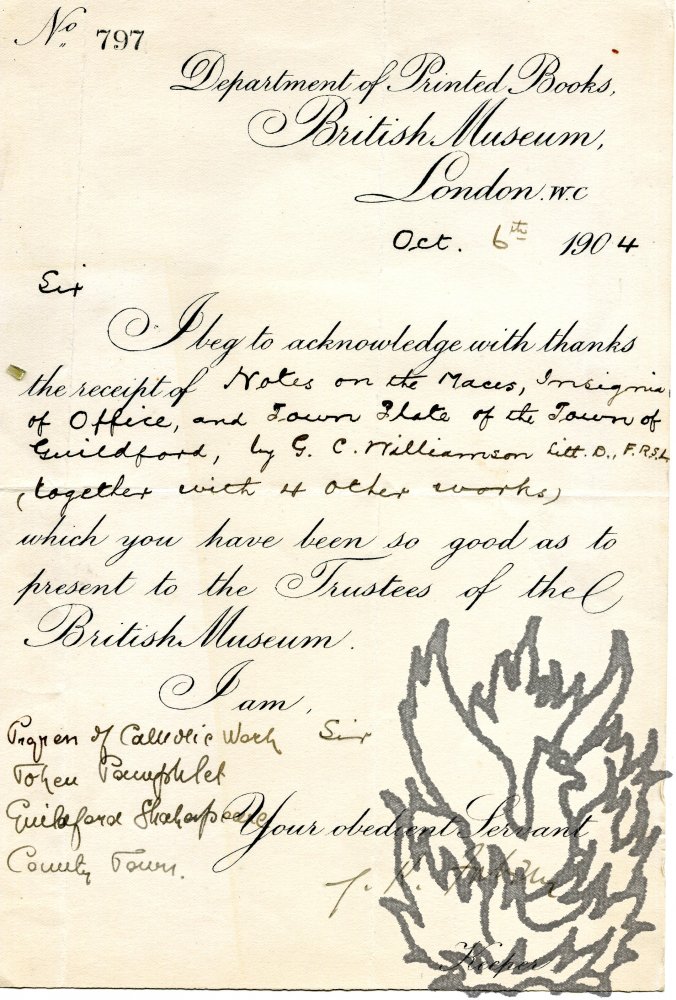 No. 797
Department of Printed Books,
British Museum,
London. W.C
Oct. 6th 1904
Sir
I beg to acknowledge with thanks
the receipt of Notes on the Maces, Insignia
of Office, and Town Plate of the Town of
Guildford, by G. C. Williamson Litt. D., F.R.S.L.
(together with 4 other works)
which you have been so good as to
present to the Trustees of the
British Museum.
I am,
Sir
Your obedient Servant
Keeper
of Catholic Work
Token Pamphlet
Guildford Shakespeare
County Town.